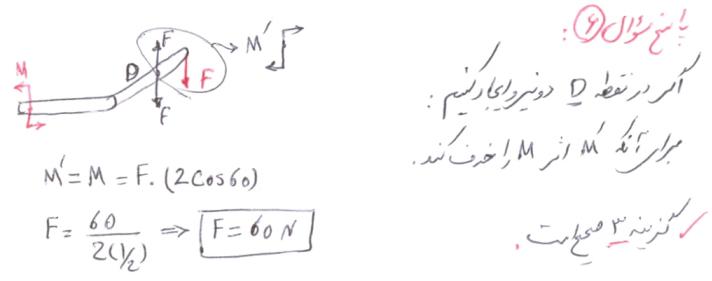 پاسخ سؤال ۶:
اگر در نقطه D دو نیرو ایجاد کنیم:
برای آنکه M' اثر M را حذف کند.
گزینه ۳ صحیح است.
M
D
F
F
F
M'
M' = M = F. (2 cos 60)
F = 60 / 2(1/2) ⇒ F = 60 N